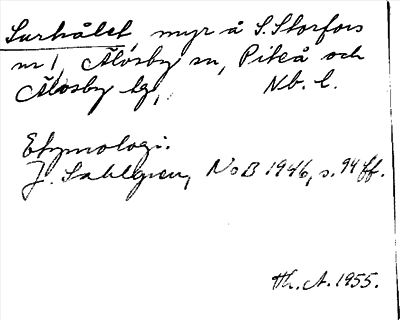 Surhålet myr å S. Storfors
nr 1, Älvsby sn, Piteå och
Älvsby tg, Nb. l.
Etymologi:
J. Sahlgren, NoB 1946, s. 94 ff.
Hh. A. 1955.